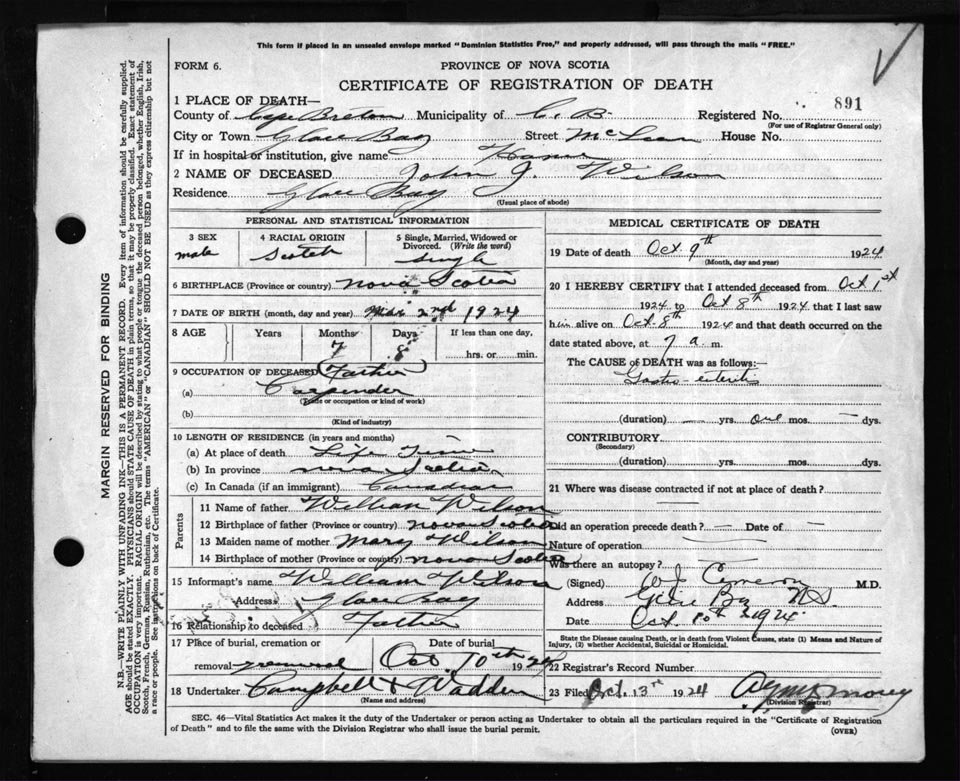 This form if placed in an unsealed envelope marked "Dominion Statistics Free," and properly addressed, will pass through the mails "FREE."
FORM 6.
PROVINCE OF NOVA SCOTIA
CERTIFICATE OF REGISTRATION OF DEATH
891
1 PLACE OF DEATH—
County of Cape Breton Municipality of C. B. Registered No.
(For use of Registrar General only)
City or Town Glace Bay Street McLean House No.
If in hospital or institution, give name Home
2 NAME OF DECEASED John J. Wilson
Residence Glace Bay
(Usual place of abode)
PERSONAL AND STATISTICAL INFORMATION
3 SEX
male
4 RACIAL ORIGIN
Scotch
5 Single, Married, Widowed or Divorced. (Write the word)
single
6 BIRTHPLACE (Province or country) Nova Scotia
7 DATE OF BIRTH (month, day and year) Mar 2nd 1924
8 AGE Years Months Days If less than one day,
7 8 hrs. or min.
9 OCCUPATION OF DECEASED Father
(a) Carpender
(Trade or occupation or kind of work)
(b)
(Kind of industry)
10 LENGTH OF RESIDENCE (in years and months)
(a) At place of death Life Time
(b) In province Nova Scotia
(c) In Canada (if an immigrant) Canadian
Parents
11 Name of father William Wilson
12 Birthplace of father (Province or country) Nova Scotia
13 Maiden name of mother Mary Wilson
14 Birthplace of mother (Province or country) Nova Scotia
15 Informant's name William Wilson
Address Glace Bay
16 Relationship to deceased Father
17 Place of burial, cremation or Date of burial
removal Oct. 10th 1924
18 Undertaker Campbell & Wadden
(Name and address)
MEDICAL CERTIFICATE OF DEATH
19 Date of death Oct. 9th 1924
(Month, day and year)
20 I HEREBY CERTIFY that I attended deceased from Oct 1st
1924 to Oct 8th 1924 that I last saw
him alive on Oct. 8th 1924 and that death occurred on the
date stated above, at 7 a. m.
The CAUSE OF DEATH was as follows:
Gastro-enteritis
(duration) — yrs. one mos. — dys.
CONTRIBUTORY
(Secondary)
(duration) yrs. mos. dys.
21 Where was disease contracted if not at place of death?
Did an operation precede death? — Date of —
Nature of operation
Was there an autopsy?
(Signed) M.D.
Address Glace Bay N.S.
Date Oct. 10th 1924
State the Disease causing Death, or in death from Violent Causes, state (1) Means and Nature of
Injury, (2) whether Accidental, Suicidal or Homicidal.
22 Registrar's Record Number
23 Filed Oct. 13th 1924
(Division Registrar)
SEC. 46—Vital Statistics Act makes it the duty of the Undertaker or person acting as Undertaker to obtain all the particulars required in the "Certificate of Registration
of Death" and to file the same with the Division Registrar who shall issue the burial permit.
(OVER)
MARGIN RESERVED FOR BINDING
N.B.—WRITE PLAINLY WITH UNFADING INK—THIS IS A PERMANENT RECORD. Every item of information should be carefully supplied.
AGE should be stated EXACTLY. PHYSICIANS should STATE CAUSE OF DEATH in plain terms, so that it may be properly classified. Exact statement of
OCCUPATION is very important. RACIAL ORIGIN will be described by stating to what people or tongue the deceased person belonged, whether English, Irish,
Scotch, French, German, Russian, Ruthenian, etc. The terms "AMERICAN" or "CANADIAN" SHOULD NOT BE USED as they express citizenship but not
a race or people. See instructions on back of Certificate.